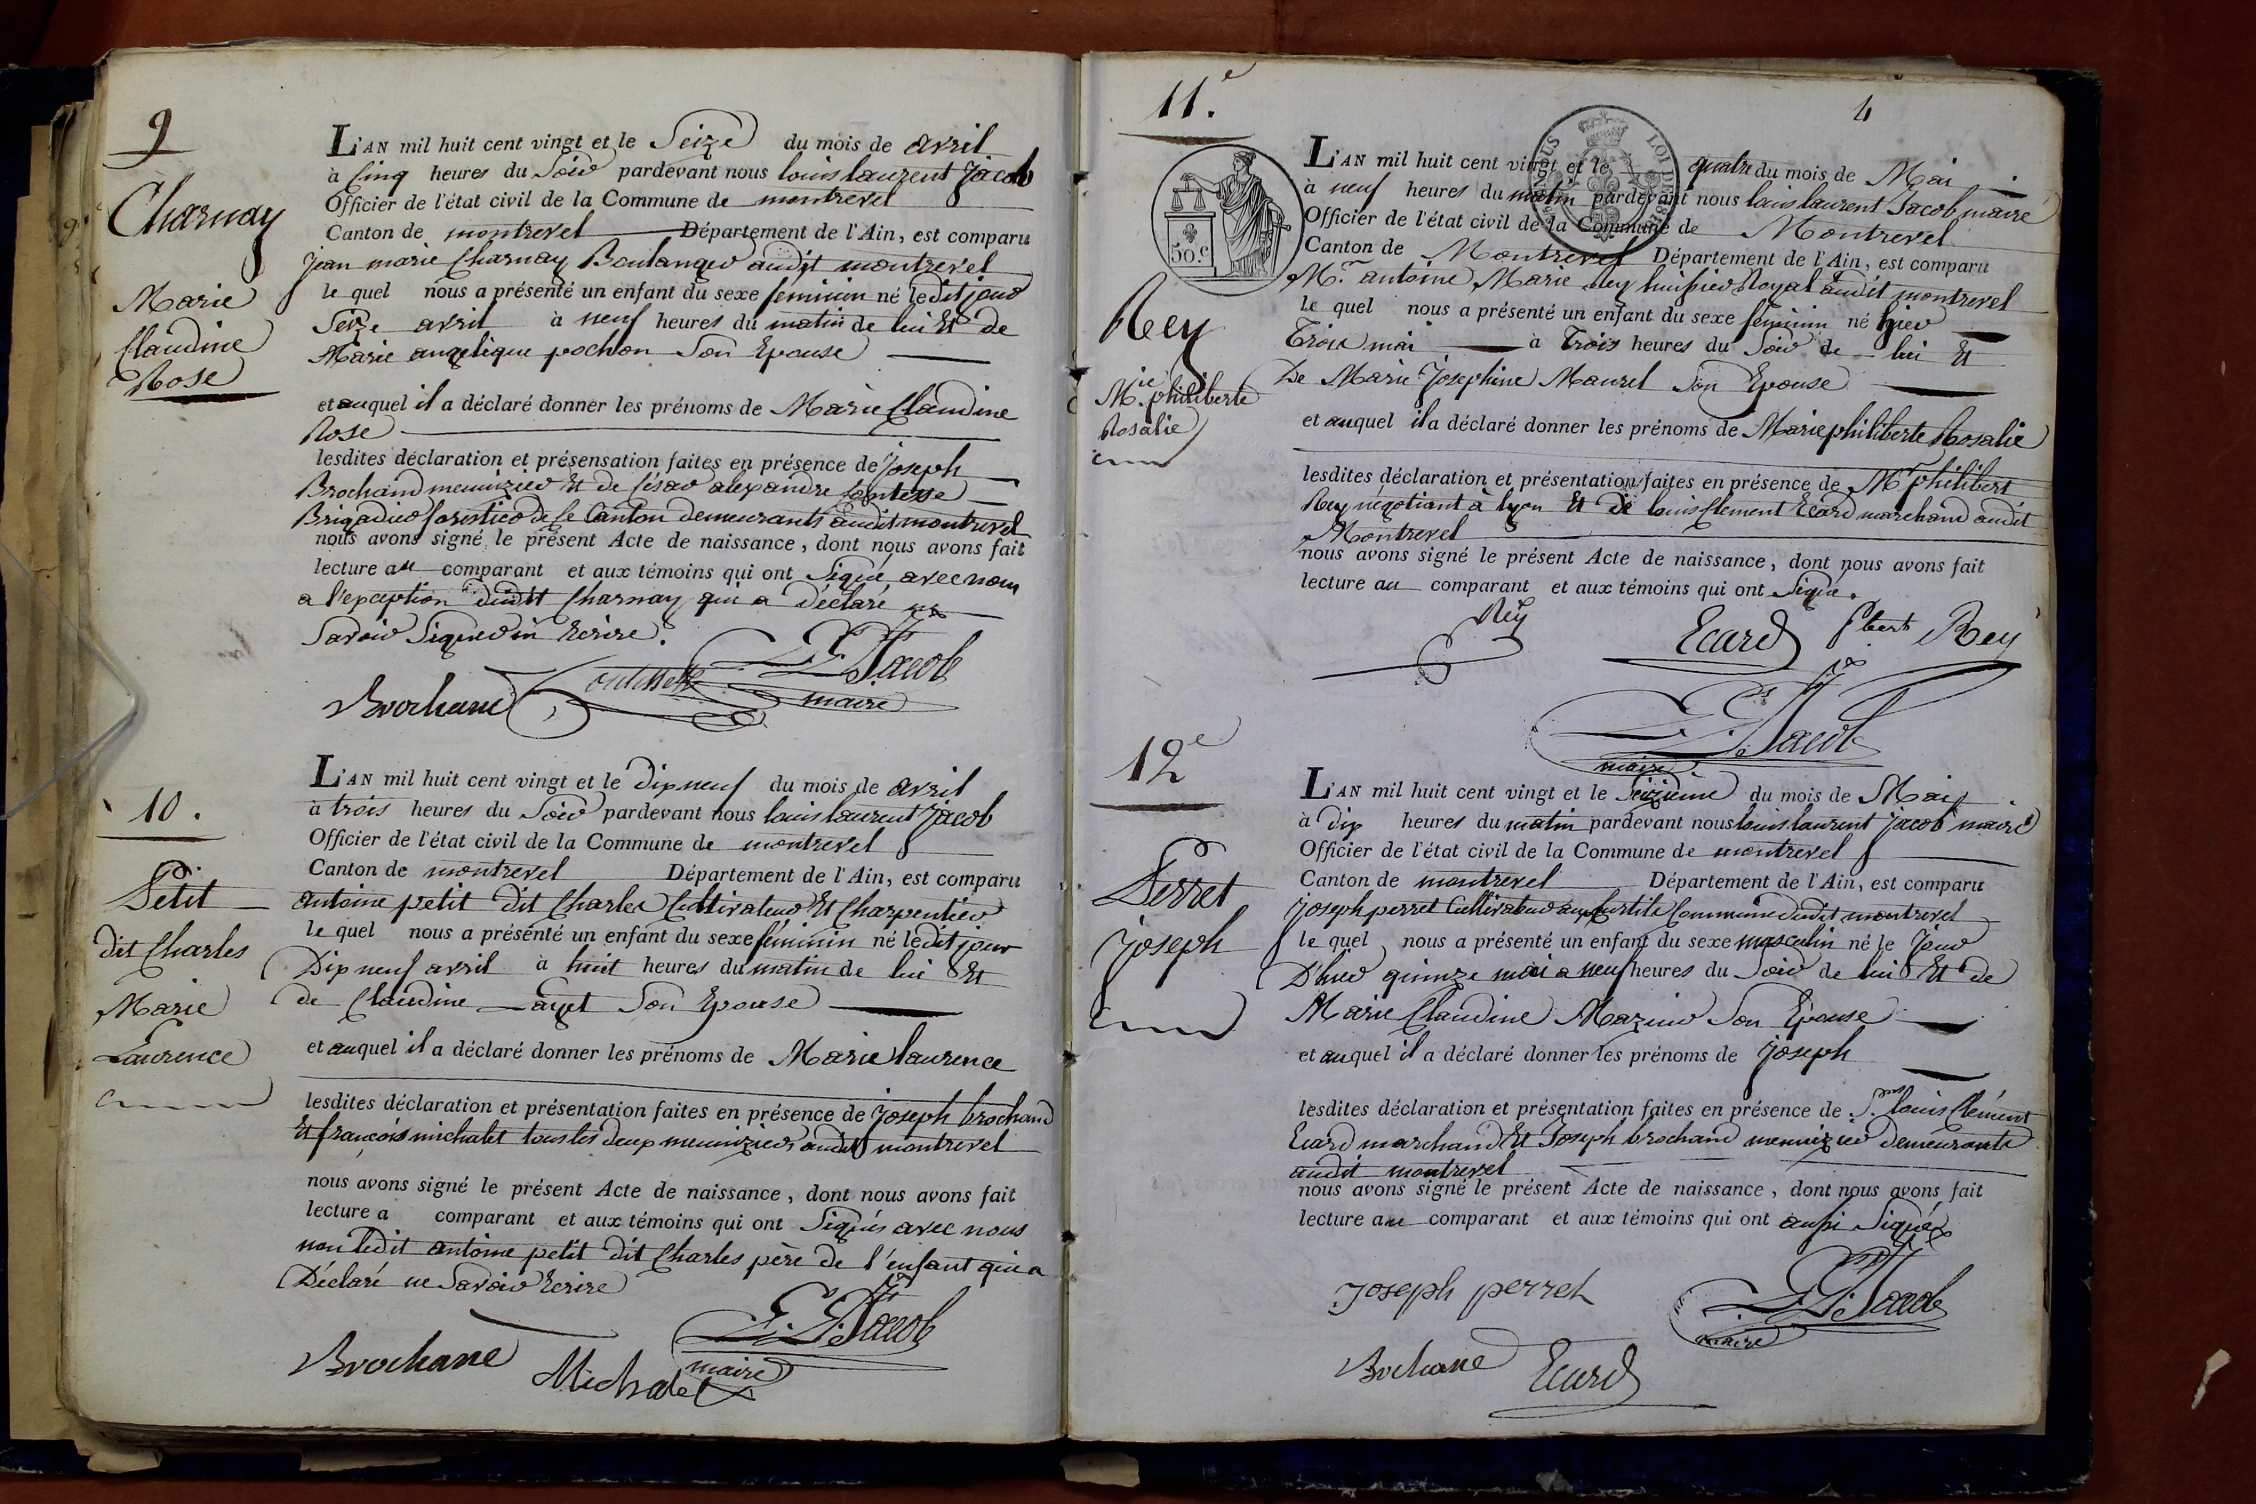 9
Charnay
Marie
Claudine
Rose
L'AN mil huit cent vingt et le Seize du mois de avril
à Cinq heures du Soir pardevant nous louis laurent Jacob
Officier de l'état civil de la Commune de montrevel
Canton de montrevel Département de l'Ain, est comparu
Jean marie Charnay Boulanger audit montrevel
le quel nous a présenté un enfant du sexe feminin né ledit jour
Seize avril à neuf heures du matin de lui Et de
Marie angelique pochon Son Epouse
et auquel il a déclaré donner les prénoms de Marie Claudine
Rose
lesdites déclaration et présensation faites en présence de Joseph
Brochand menuizier Et de César alexandre Contesse
Brigadier forestier de Ce Canton demeurants audit montrevel
nous avons signé le présent Acte de naissance, dont nous avons fait
lecture au comparant et aux témoins qui ont Signé avec nous
a l'exception dudit Charnay qui a déclaré ne
Savoir Signer ni Ecrire.
L. L. Jacob
Brochand
maire
10.
Petit
dit Charles
Marie
Laurence
L'AN mil huit cent vingt et le dix neuf du mois de avril
à trois heures du Soir pardevant nous louis laurent Jacob
Officier de l'état civil de la Commune de montrevel
Canton de montrevel Département de l'Ain, est comparu
antoine petit dit Charles Cultivateur Et Charpentier
le quel nous a présenté un enfant du sexe féminin né ledit jour
Dix neuf avril à huit heures du matin de lui Et
de Claudine Son Epouse
et auquel il a déclaré donner les prénoms de Marie laurence
lesdites déclaration et présentation faites en présence de Joseph brochand
Et françois michalet tous les deux menuiziers audit montrevel
nous avons signé le présent Acte de naissance, dont nous avons fait
lecture a comparant et aux témoins qui ont Signés avec nous
non ledit antoine petit dit Charles père de l'enfant qui a
Déclaré ne Savoir Ecrire
L. L. Jacob
maire
Brochand Michalet
11.e
4
LOI DE 1816
50.C
Rey
M.ie philiberte
Rosalie
L'AN mil huit cent vingt et le quatre du mois de Mai
à neuf heures du matin pardevant nous louis laurent Jacob maire
Officier de l'état civil de la Commune de Montrevel
Canton de Montrevel Département de l'Ain, est comparu
M.r antoine Marie Rey huissier Royal audit montrevel
le quel nous a présenté un enfant du sexe féminin né hier
Trois mai à Trois heures du Soir de lui Et
De Marie Josephine Maurel Son Epouse
et auquel il a déclaré donner les prénoms de Marie philiberte Rosalie
lesdites déclaration et présentation faites en présence de M.r philibert
Rey négotiant à lyon Et de louis Clement Ecard marchand audit
Montrevel
nous avons signé le présent Acte de naissance, dont nous avons fait
lecture au comparant et aux témoins qui ont Signé.
Rey
Ecard Pbert Rey
L. L. Jacob
maire
12e
Perret
Joseph
L'AN mil huit cent vingt et le Seizième du mois de Mai
à dix heures du matin pardevant nous louis laurent Jacob maire
Officier de l'état civil de la Commune de montrevel
Canton de montrevel Département de l'Ain, est comparu
Joseph perret Cultivateur aux Curtils Commune dudit montrevel
le quel nous a présenté un enfant du sexe masculin né le Jour
D'hier quinze mai a neuf heures du Soir de lui Et de
Marie Claudine Mazuir Son Epouse
et auquel il a déclaré donner les prénoms de Joseph
lesdites déclaration et présentation faites en présence de S.rs louis Clément
Ecard marchand Et Joseph brochand menuizier demeurants
audit montrevel
nous avons signé le présent Acte de naissance, dont nous avons fait
lecture au comparant et aux témoins qui ont aussi Signés
Joseph perret L. L. Jacob
maire
Brochand Ecard